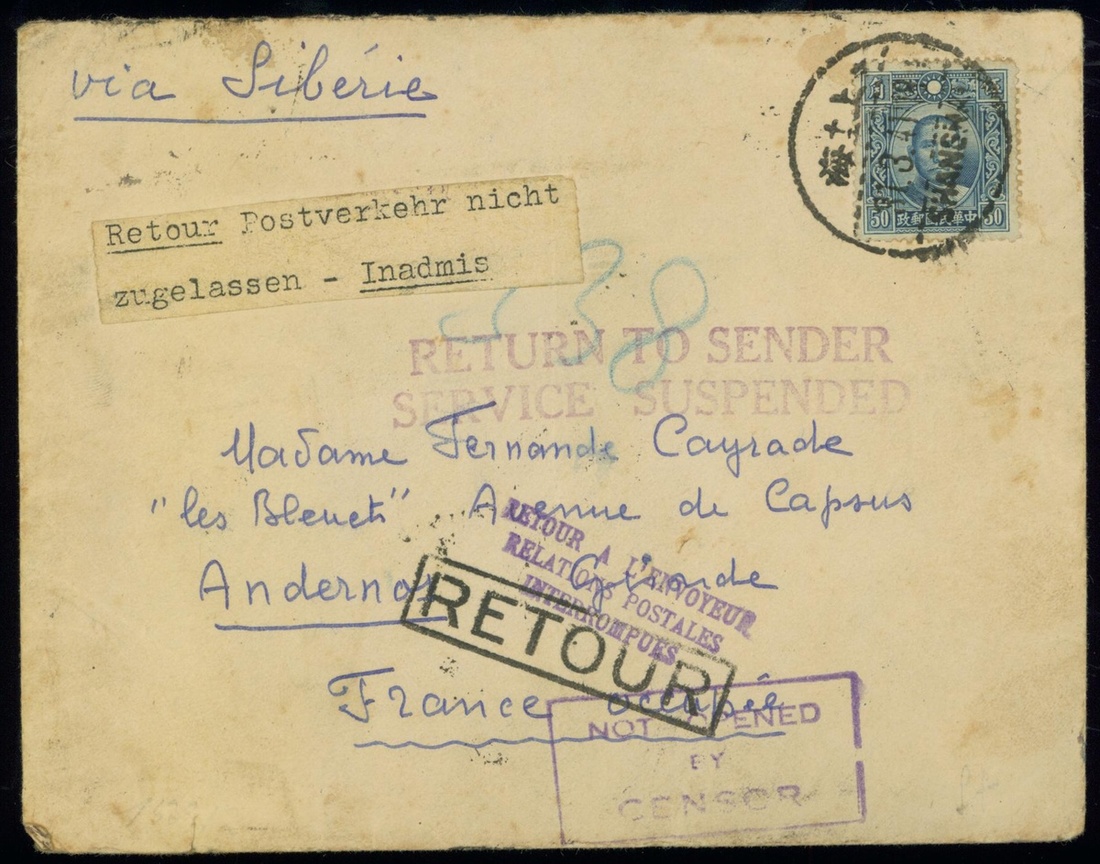 via Sibérie
上海
SHANGHAI
50 政郵國民華中 50
Retour Postverkehr nicht
zugelassen - Inadmis
38
RETURN TO SENDER
SERVICE SUSPENDED
Madame Fernande Cayrade
"les Bleuets" Avenue de Capsus
Andernos Gironde
RETOUR A L'ENVOYEUR
RELATIONS POSTALES
INTERROMPUES
RETOUR
France occupée
NOT OPENED
BY
CENSOR